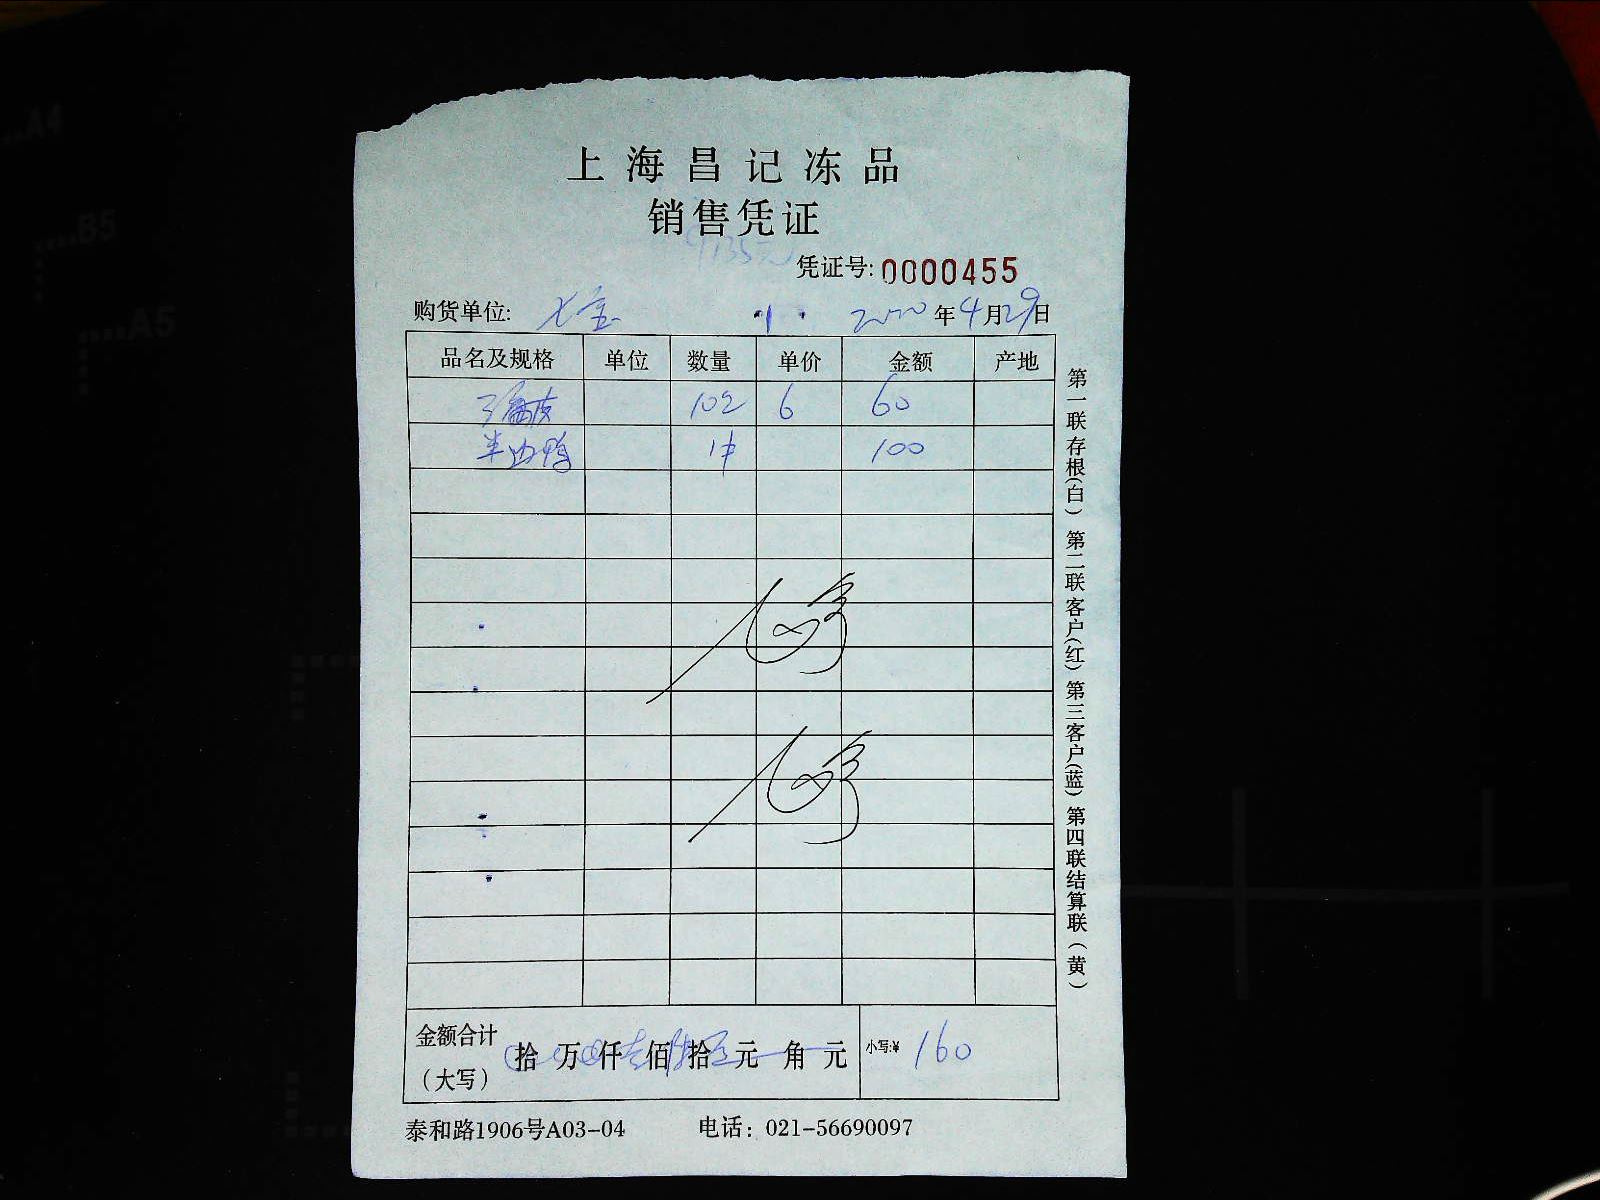 上海昌记冻品
销售凭证
凭证号: 0000455
购货单位: 七宝 2020年4月29日
品名及规格 单位 数量 单价 金额 产地
皮 102 6 60
半边鸭 1件 100
金额合计 拾 万 仟 佰 拾 元 角 元 小写:¥ 160
（大写）
泰和路1906号A03-04 电话: 021-56690097
第一联存根(白) 第二联客户(红) 第三客户(蓝) 第四联结算联(黄)
A4
B5
A5